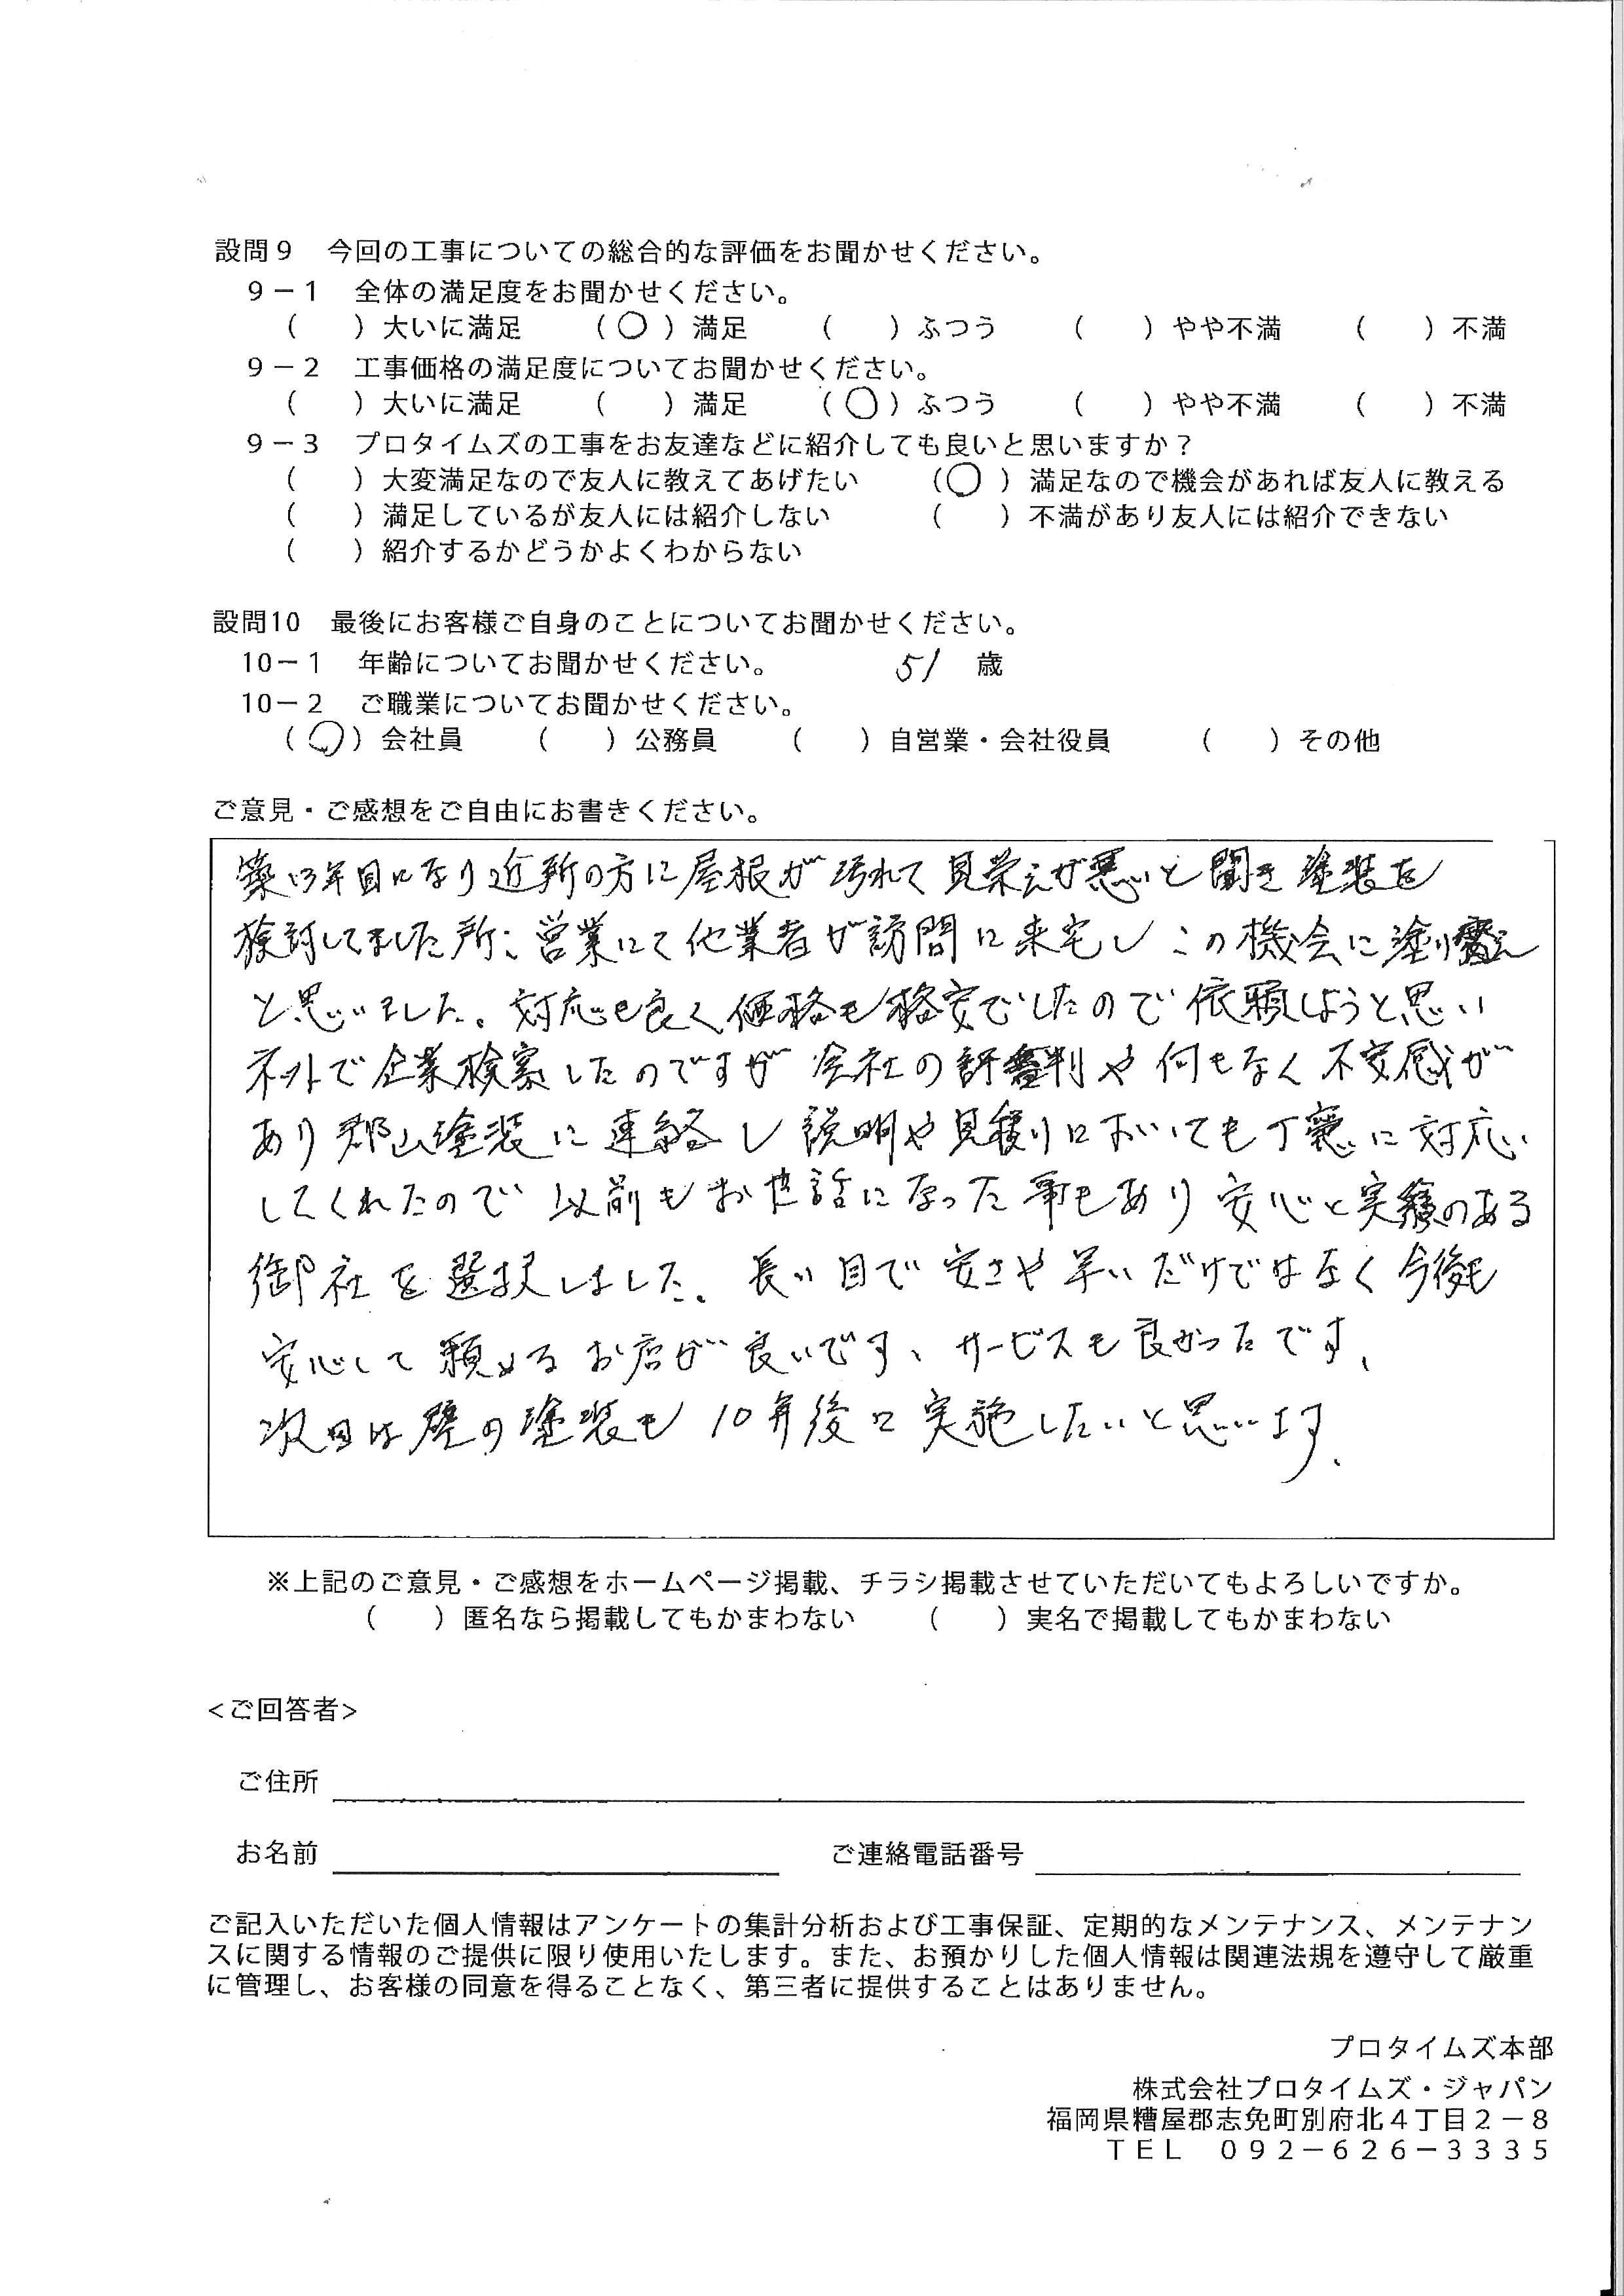 設問9　今回の工事についての総合的な評価をお聞かせください。
9－1　全体の満足度をお聞かせください。
(　　)大いに満足　　(○)満足　　(　　)ふつう　　(　　)やや不満　　(　　)不満
9－2　工事価格の満足度についてお聞かせください。
(　　)大いに満足　　(　　)満足　　(○)ふつう　　(　　)やや不満　　(　　)不満
9－3　プロタイムズの工事をお友達などに紹介しても良いと思いますか？
(　　)大変満足なので友人に教えてあげたい　　(○)満足なので機会があれば友人に教える
(　　)満足しているが友人には紹介しない　　(　　)不満があり友人には紹介できない
(　　)紹介するかどうかよくわからない
設問10　最後にお客様ご自身のことについてお聞かせください。
10－1　年齢についてお聞かせください。　　51　歳
10－2　ご職業についてお聞かせください。
(○)会社員　　(　　)公務員　　(　　)自営業・会社役員　　(　　)その他
ご意見・ご感想をご自由にお書きください。
築13年目になり近所の方に屋根が汚れて見栄えが悪いと聞き塗装を
検討してました所、営業にて他業者が訪問に来宅しこの機会に塗り替え
と思いました。対応も良く価格も格安でしたので依頼しようと思い
ネットで企業検索したのですが会社の評判や何もなく不安感が
あり郡山塗装に連絡し説明や見積りにおいても丁寧に対応い
してくれたので以前もお世話になった事もあり安心と実績のある
御社を選択しました。長い目で安さや早いだけではなく今後も
安心して頼めるお店が良いです、サービスも良かったです、
次回は壁の塗装も10年後に実施したいと思います、
※上記のご意見・ご感想をホームページ掲載、チラシ掲載させていただいてもよろしいですか。
(　　)匿名なら掲載してもかまわない　　(　　)実名で掲載してもかまわない
<ご回答者>
ご住所
お名前　　ご連絡電話番号
ご記入いただいた個人情報はアンケートの集計分析および工事保証、定期的なメンテナンス、メンテナン
スに関する情報のご提供に限り使用いたします。また、お預かりした個人情報は関連法規を遵守して厳重
に管理し、お客様の同意を得ることなく、第三者に提供することはありません。
プロタイムズ本部
株式会社プロタイムズ・ジャパン
福岡県糟屋郡志免町別府北4丁目2－8
TEL　092－626－3335